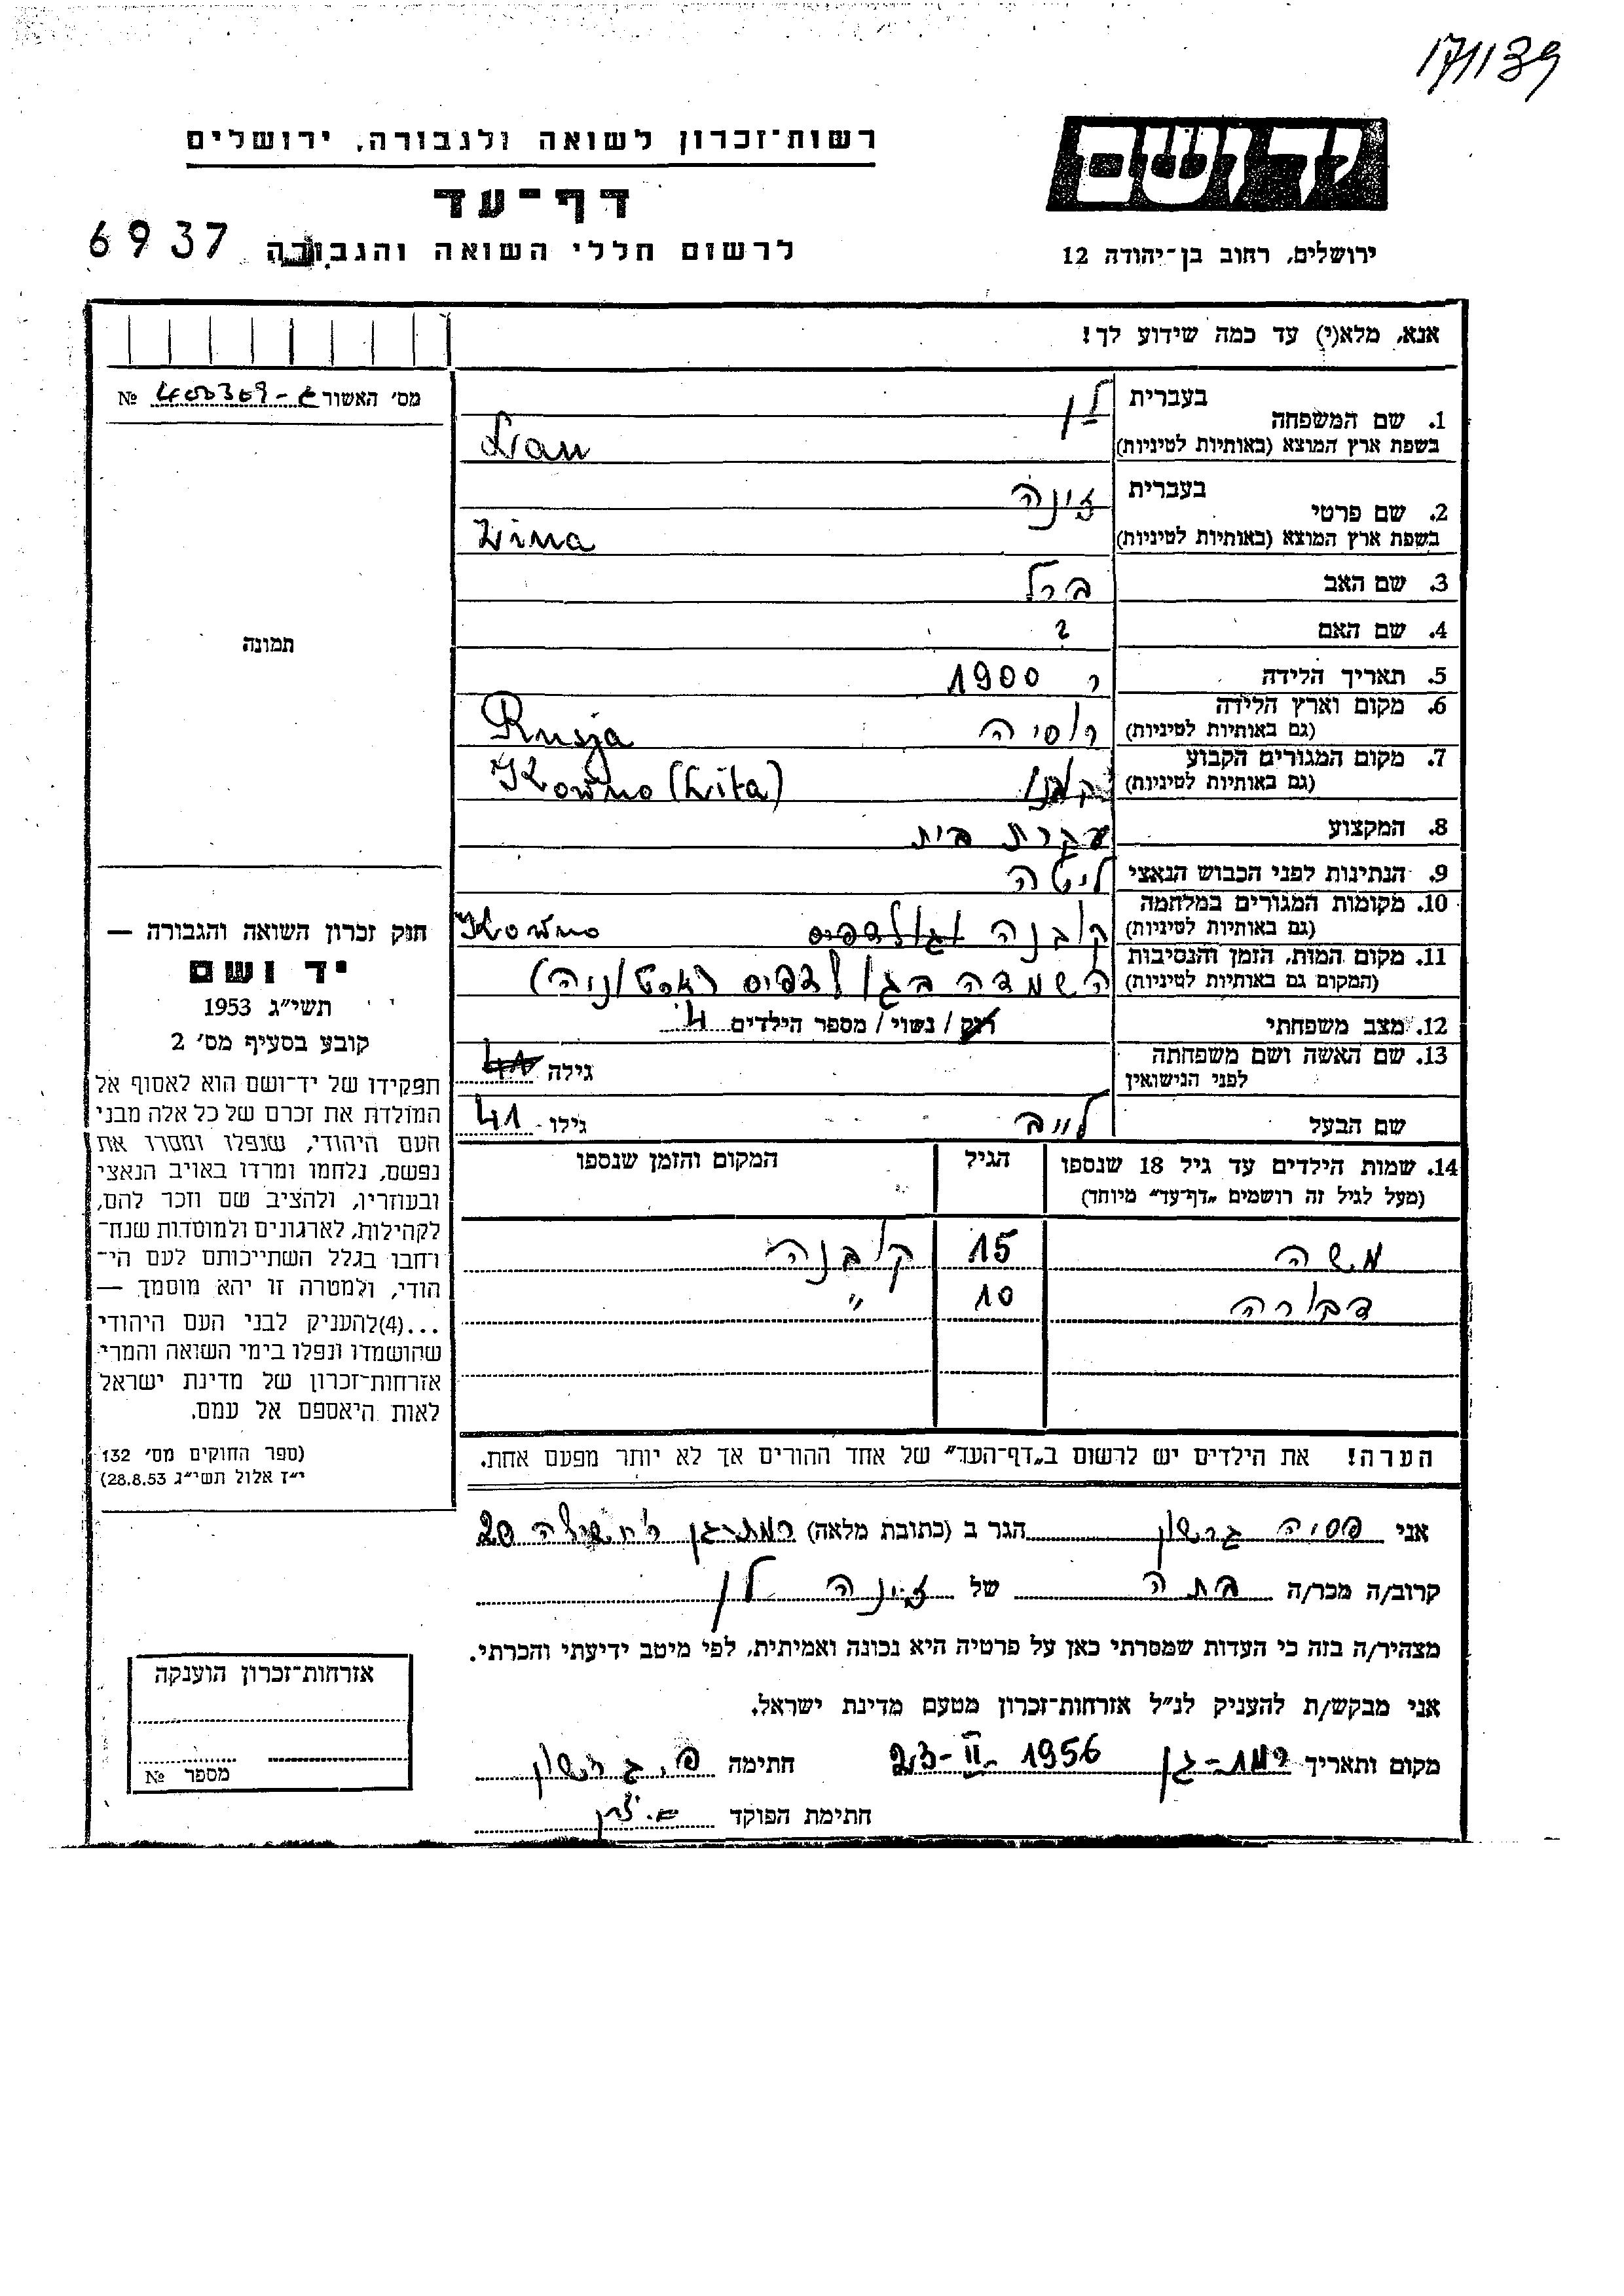 171139
רשות־זכרון לשואה ולגבורה, ירושלים
יד ושם
דף־עד
6937
לרשום חללי השואה והגבורה
ירושלים, רחוב בן־יהודה 12
אנא, מלא(י) עד כמה שידוע לך!
מס׳ האשור №
1. שם המשפחה בעברית לן
בשפת ארץ המוצא (באותיות לטיניות) Lan
2. שם פרטי בעברית זינה
בשפת ארץ המוצא (באותיות לטיניות) Zina
3. שם האב ברל
4. שם האם ?
5. תאריך הלידה 1900
6. מקום וארץ הלידה (גם באותיות לטיניות) רוסיה Rusja
7. מקום המגורים הקבוע (גם באותיות לטיניות) קובנו Kowno (Lita)
8. המקצוע עקרת בית
9. הנתינות לפני הכבוש הנאצי ליטה
10. מקומות המגורים במלחמה (גם באותיות לטיניות) קובנה Kowno
11. מקום המות, הזמן והנסיבות (המקום גם באותיות לטיניות) השמדה בגולדפיס (אסטוניה)
12. מצב משפחתי רוק / נשוי / מספר הילדים 4
13. שם האשה ושם משפחתה לפני הנישואין גילה 41
שם הבעל לייב גילו 41
14. שמות הילדים עד גיל 18 שנספו הגיל המקום והזמן שנספו
(מעל לגיל זה רושמים „דף־עד״ מיוחד)
משה 15 קובנה
דבורה 10 ״
הערה! את הילדים יש לרשום ב„דף־העד״ של אחד ההורים אך לא יותר מפעם אחת.
אני פסיה גרשון הגר ב (כתובת מלאה) רמת־גן 20
קרוב/ה מכר/ה בתה של זינה לן
מצהיר/ה בזה כי העדות שמסרתי כאן על פרטיה היא נכונה ואמיתית, לפי מיטב ידיעתי והכרתי.
אני מבקש/ת להעניק לנ״ל אזרחות־זכרון מטעם מדינת ישראל.
מקום ותאריך רמת־גן 23-II-1956 חתימה פ. גרשון
חתימת הפוקד
תמונה
חוק זכרון השואה והגבורה —
יד ושם
תשי״ג 1953
קובע בסעיף מס׳ 2
תפקידו של יד־ושם הוא לאסוף אל
המולדת את זכרם של כל אלה מבני
העם היהודי, שנפלו ומסרו את
נפשם, נלחמו ומרדו באויב הנאצי
ובעוזריו, ולהציב שם וזכר להם,
לקהילות, לארגונים ולמוסדות שנח־
רחבו בגלל השתייכותם לעם הי־
הודי, ולמטרה זו יהא מוסמך —
...(4)להעניק לבני העם היהודי
שהושמדו ונפלו בימי השואה והמרי
אזרחות־זכרון של מדינת ישראל
לאות היאספם אל עמם.
(ספר החוקים מס׳ 132
י״ז אלול תשי״ג 28.8.53)
אזרחות־זכרון הוענקה
מספר №